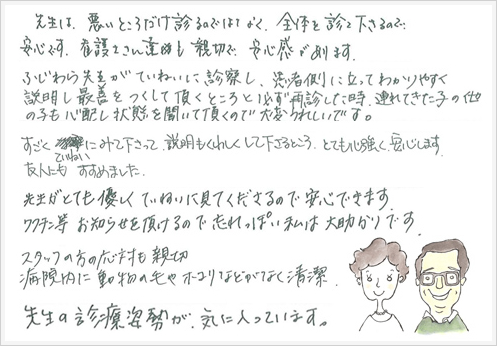 先生は、悪いところだけ診るのではなく、全体を診て下さるので
安心です。看護士さん達も親切で安心感があります。
ふじわら先生がていねいに診察し、患者側に立ってわかりやすく
説明し最善をつくして頂くところと必ず再診した時、連れてきた子の他
の子も心配し状態を聞いて頂くので大変うれしいです。
すごくていねいにみて下さって、説明もくわしくして下さるところ、とても心強く安心します。
友人にもすすめました。
先生がとても優しくていねいに見てくださるので安心できます
ワクチン等お知らせを頂けるので忘れっぽい私は大助かりです。
スタッフの方の応対も親切
病院内に動物の毛やホコリなどがなく清潔.
先生の診療姿勢が、気に入っています。